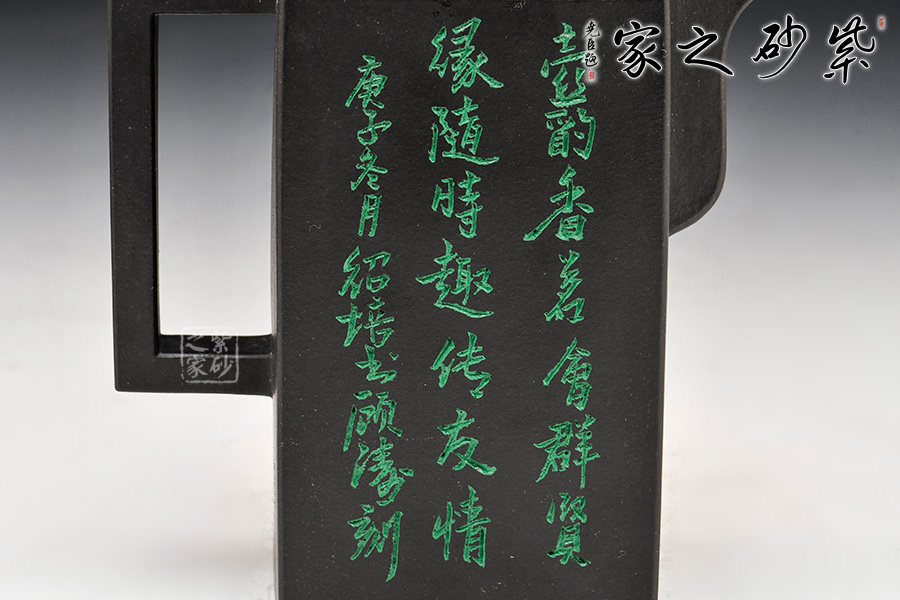 壺酌香茗會群賢
緣隨時趣传友情
庚子冬月 绍培书顾涛刻
紫砂之家
紫砂之家